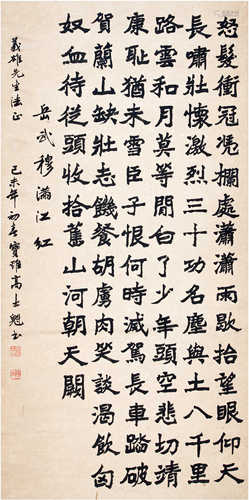 怒髮衝冠凭欄處瀟瀟雨歇抬望眼仰天
長嘯壯懷激烈三十功名塵與土八千里
路雲和月莫等間白了少年頭空悲切靖
康耻猶未雪臣子恨何時滅駕長車踏破
賀蘭山缺壯志饑餐胡虜肉笑談渴飲匈
奴血待從頭收拾舊山河朝天闕
岳武穆滿江紅
義雄先生法正
己未年初春寶雞高士魁书